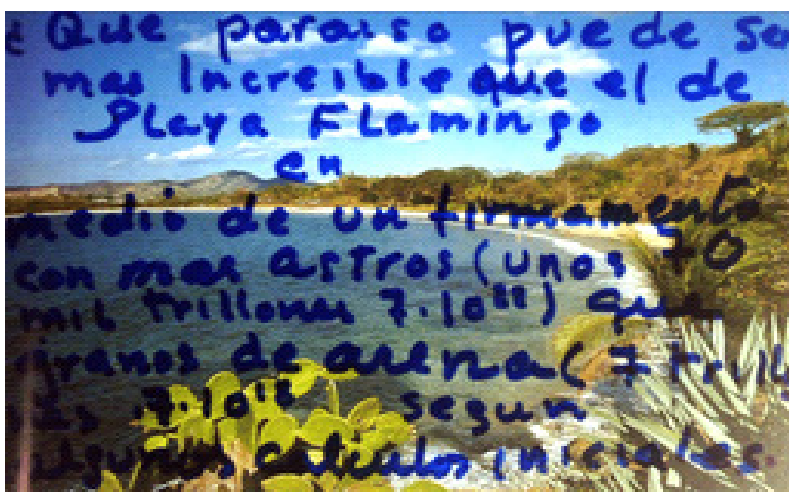 ¿Que paraiso puede se
mas increible que el de
Playa Flamingo
en
medio de un firmamento
con mas astros (unos 70
mil trillones 7.10²²) que
granos de arena (7 trillo
nes 7.10¹⁸ segun
algunos calculos iniciales.